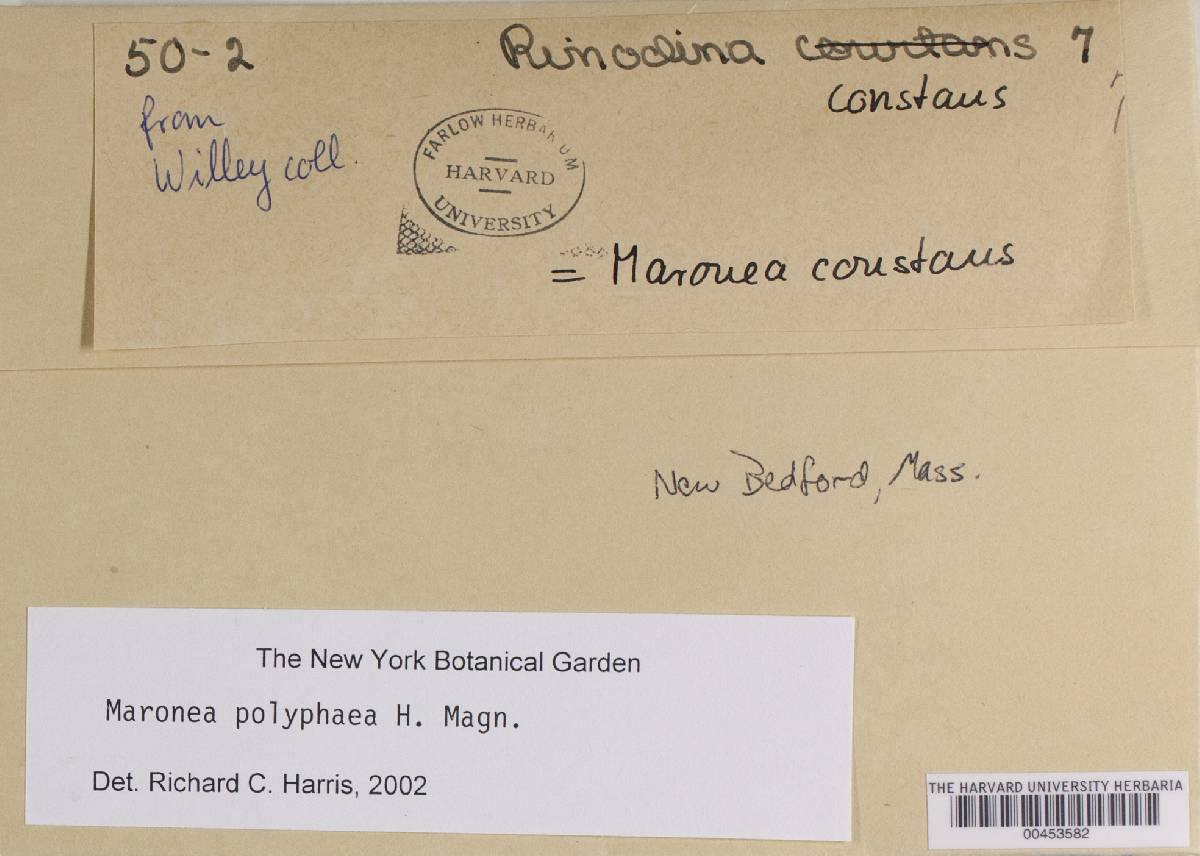 50-2 Rinodina 7
constans
from
Willey coll.
FARLOW HERBARIUM
HARVARD
UNIVERSITY
= Maronea constans
New Bedford, Mass.
The New York Botanical Garden
Maronea polyphaea H. Magn.
Det. Richard C. Harris, 2002
THE HARVARD UNIVERSITY HERBARIA
00453582